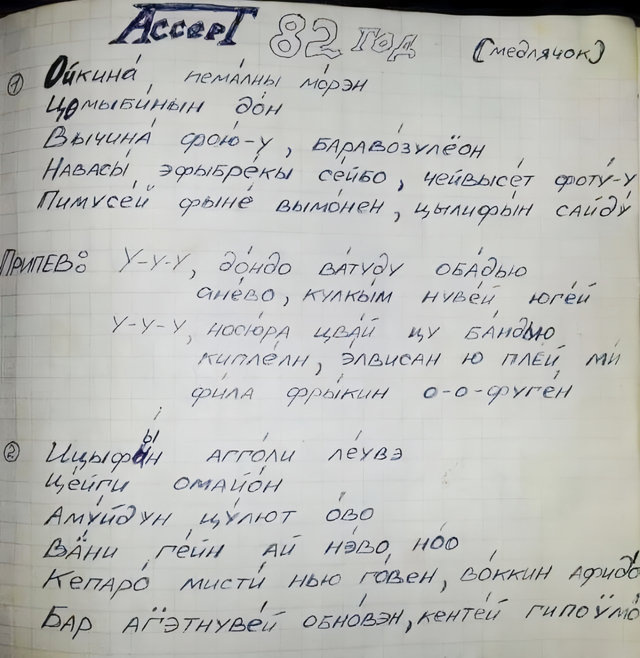 Accept 82 год (медлячок)
① Ойкина́ нема́лны мо́рэн
Цомыби́нын до́н
Вычина́ фою́-у, бараво́зулёон
Навасы́ эфыбре́кы се́йбо, чейвысе́т фоту́-у
Пимусе́й фыне́ вымо́нен, цылифы́н сайду́
Припев: У-у-у, до́ндо ва́туду оба́дью
ане́во, кулкы́м нуве́й юге́й
У-у-у, носю́ра цва́й цу ба́ндью
кипле́лн, э́лвисан ю пле́й ми́
фи́ла фры́кин о-о-фуге́н
② Ицыфы́н агго́ли ле́увэ
Це́йги омайо́н
Аму́йдун цулют о́во
Ва́ни ге́йн ай нэ́во, но́о
Кепаро́ мисти́ нью го́вен, во́ккин афидо́
Бар агэтнуве́й обно́вэн, кенте́й гипоўмо́